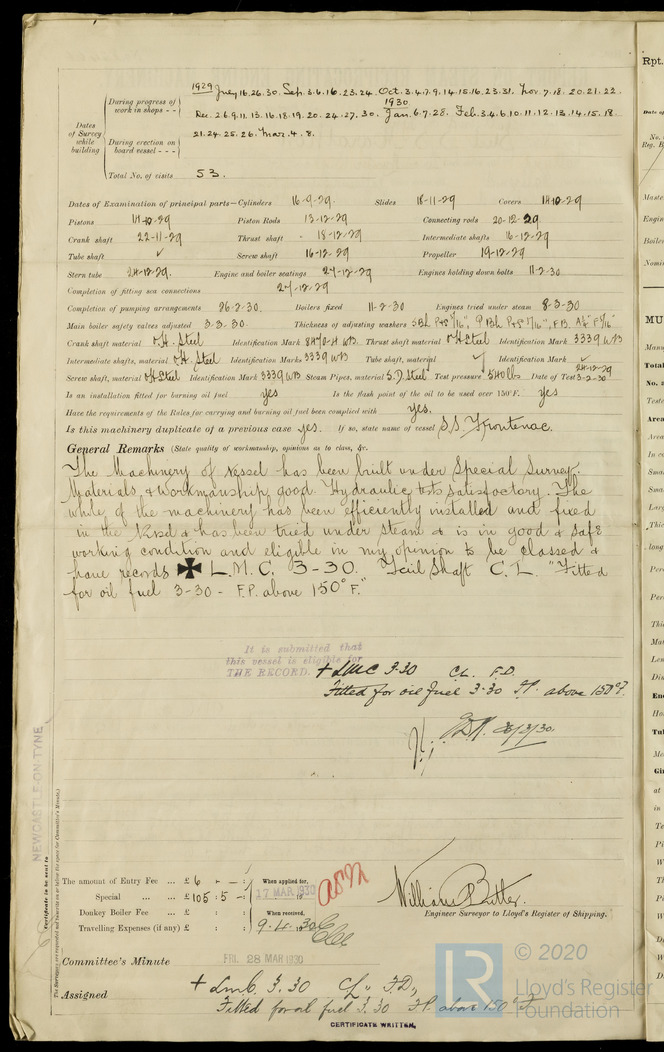 1929 July 16. 26. 30. Sep. 3. 6. 16. 23. 24. Oct. 3. 4. 7. 9. 14. 15. 16. 23. 31. Nov. 7. 18. 20. 21. 22.
During progress of work in shops - -
Dec. 2. 6. 9. 11. 13. 16. 18. 19. 20. 24. 27. 30. 1930 Jan. 6. 7. 28. Feb. 3. 4. 6. 10. 11. 12. 13. 14. 15. 18.
Dates of Survey while building
During erection on board vessel - - -
21. 24. 25. 26. Mar. 4. 8.
Total No. of visits 53.
Dates of Examination of principal parts—Cylinders 16-9-29. Slides 18-11-29 Covers 14-10-29
Pistons 14-10-29 Piston Rods 13-12-29 Connecting rods 20-12-29
Crank shaft 22-11-29 Thrust shaft - 18-12-29 Intermediate shafts 16-12-29
Tube shaft ✓ Screw shaft 16-12-29 Propeller 19-12-29
Stern tube 24-12-29. Engine and boiler seatings 27-12-29 Engines holding down bolts 11-2-30
Completion of fitting sea connections 27-12-29
Completion of pumping arrangements 26-2-30. Boilers fixed 11-2-30 Engines tried under steam 8-3-30
Main boiler safety valves adjusted 3-3-30. Thickness of adjusting washers
Crank shaft material O.H. Steel Identification Mark Thrust shaft material O.H. Steel Identification Mark 3339 WB
Intermediate shafts, material O.H. Steel Identification Marks 3339 WB Tube shaft, material ✓ Identification Mark ✓
Screw shaft, material O.H. Steel Identification Mark 3339 WB Steam Pipes, material S.D. Steel Test pressure 540 lbs Date of Test 24-12-29 3-2-30
Is an installation fitted for burning oil fuel yes Is the flash point of the oil to be used over 150°F. yes
Have the requirements of the Rules for carrying and burning oil fuel been complied with yes.
Is this machinery duplicate of a previous case yes. If so, state name of vessel S.S. Frontenac.
General Remarks (State quality of workmanship, opinions as to class, &c.
The Machinery of Vessel has been built under Special Survey.
Materials & Workmanship good. Hydraulic tests satisfactory. The
whole of the machinery has been efficiently installed and fixed
in the Vessel & has been tried under steam & is in good & safe
working condition and eligible in my opinion to be classed &
have records ✠ L.M.C. 3-30. Tail Shaft C.L. "Fitted
for oil fuel 3-30 - F.P. above 150° F."
It is submitted that
this vessel is eligible for
THE RECORD. + LMC 3.30 CL. F.D.
Fitted for oil fuel 3.30 F.P. above 150°F.
NEWCASTLE-ON-TYNE
Certificate to be sent to
The amount of Entry Fee ... £ 6 - - : When applied for,
Special ... £ 105 . 5 - : 17 MAR 1930
Donkey Boiler Fee ... £ : : When received,
Travelling Expenses (if any) £ : : 9. 4. 1930
William Butler.
Engineer Surveyor to Lloyd's Register of Shipping.
Committee's Minute FRI. 28 MAR 1930
Assigned + LMC. 3.30 CL. F.D.,
Fitted for oil fuel 3.30 F.P. above 150° F.
CERTIFICATE WRITTEN.
LR © 2020
Lloyd's Register
Foundation
Rpt.